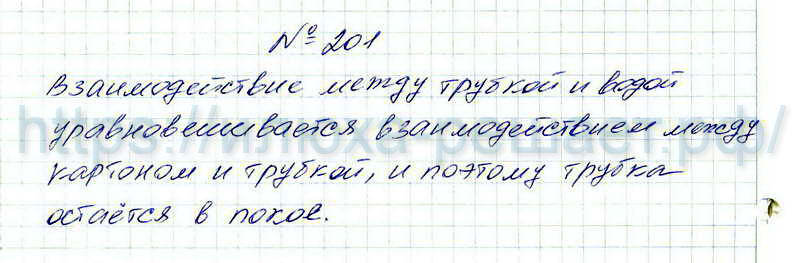 № 201
Взаимодействие между трубкой и водой
уравновешивается взаимодействием между
картоном и трубкой, и поэтому трубка
остаётся в покое.